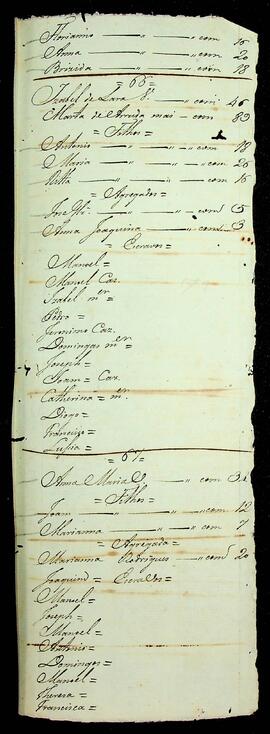 Florianno — — " — com 16
Anna — — " — com 20
Brizida — — " — com 18
= 66 =
Izabel de Lara V.ª — " — com 46
Marta de Arruda mai — com 89
= Filhos =
Antonio — — " — com 18
Maria — — " — com 26
Ritta — — " — com 16
= Agregados =
Joze — " — com 5
Anna Joaquina — com 3
= Escravos =
Manoel =
Manoel Caz.
Izabel m.er
Pedro =
Jeronimo Caz.
Domingas m.er
Joseph =
Joam = Caz.
Catherina = m.er
Diogo =
Francisco =
Luzia =
= 67 =
Anna Maria — " — com 32
= Filhos =
Joam — — " — com 12
Marianna — — " — com 7
= Agregada =
Marianna Rodrigues — com 20
= Escravos =
Joaquim =
Manoel =
Joseph =
Manoel =
Antonio =
Domingos =
Manoel =
Thereza =
Francisca =